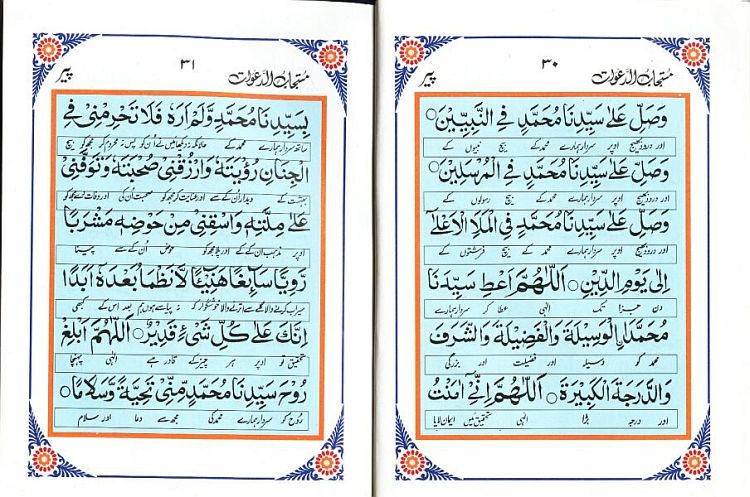 مستجاب الدعوات ٣٠ پیر
وَصَلِّ عَلٰى سَيِّدِنَا مُحَمَّدٍ فِي النَّبِيِّيْنَ ○
اور درود بھیج اوپر سردار ہمارے محمد کے بیچ نبیوں کے
وَصَلِّ عَلٰى سَيِّدِنَا مُحَمَّدٍ فِي الْمُرْسَلِيْنَ ○
اور درود بھیج اوپر سردار ہمارے محمد کے بیچ رسولوں کے
وَصَلِّ عَلٰى سَيِّدِنَا مُحَمَّدٍ فِي الْمَلَاِ الْاَعْلٰى
اور درود بھیج اوپر سردار ہمارے محمد کے بیچ فرشتوں کے
اِلٰى يَوْمِ الدِّيْنِ ○ اَللّٰهُمَّ اَعْطِ سَيِّدَنَا
دن جزا تک الٰہی عطا کر سردار ہمارے
مُحَمَّدَا ِۨالْوَسِيْلَةَ وَالْفَضِيْلَةَ وَالشَّرَفَ
محمد کو وسیلہ اور فضیلت اور بزرگی
وَالدَّرَجَةَ الْكَبِيْرَةَ ○ اَللّٰهُمَّ اِنِّيْ اٰمَنْتُ
اور درجہ بڑا الٰہی تحقیق میں ایمان لایا
مستجاب الدعوات ٣١ پیر
بِسَيِّدِنَا مُحَمَّدٍ وَّلَمْ اَرَهٗ فَلَا تَحْرِمْنِيْ فِي
ساتھ سردار ہمارے محمد کے حالانکہ نہ دیکھا میں نے اُن کو پس نہ محروم کر مجھ کو بیچ
الْجِنَانِ رُؤْيَتَهٗ وَارْزُقْنِيْ صُحْبَتَهٗ وَتَوَفَّنِيْ
بہشت کے دیدار اُن کے سے اور عنایت کر مجھ کو صحبت اُن کی اور وفات دے مجھ کو
عَلٰى مِلَّتِهٖ وَاسْقِنِيْ مِنْ حَوْضِهٖ مَشْرَبًا
اوپر مذہب اُن کے کے اور پلا مجھ کو حوض اُن کے سے پینا
رَّوِيًّا سَآئِغًا هَنِيْٓئًا لَّا نَظْمَاُ بَعْدَهٗ اَبَدًا
سیراب کرنے والا گلے سے اترنے والا خوشگوار کہ نہ پیاسے ہوں ہم بعد اس کے کبھی
اِنَّكَ عَلٰى كُلِّ شَيْءٍ قَدِيْرٌ ○ اَللّٰهُمَّ اَبْلِغْ
تحقیق تو اوپر ہر چیز کے قادر ہے الٰہی پہنچا
رُوْحَ سَيِّدِنَا مُحَمَّدٍ مِّنِّيْ تَحِيَّةً وَّسَلَامًا ○
رُوح کو سردار ہمارے محمد کی مجھ سے دعا اور سلام